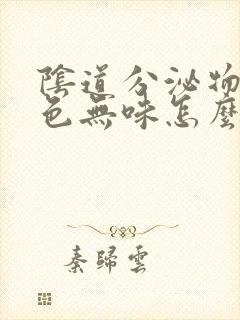 陰道分泌物
色無味怎麼
秦歸雲